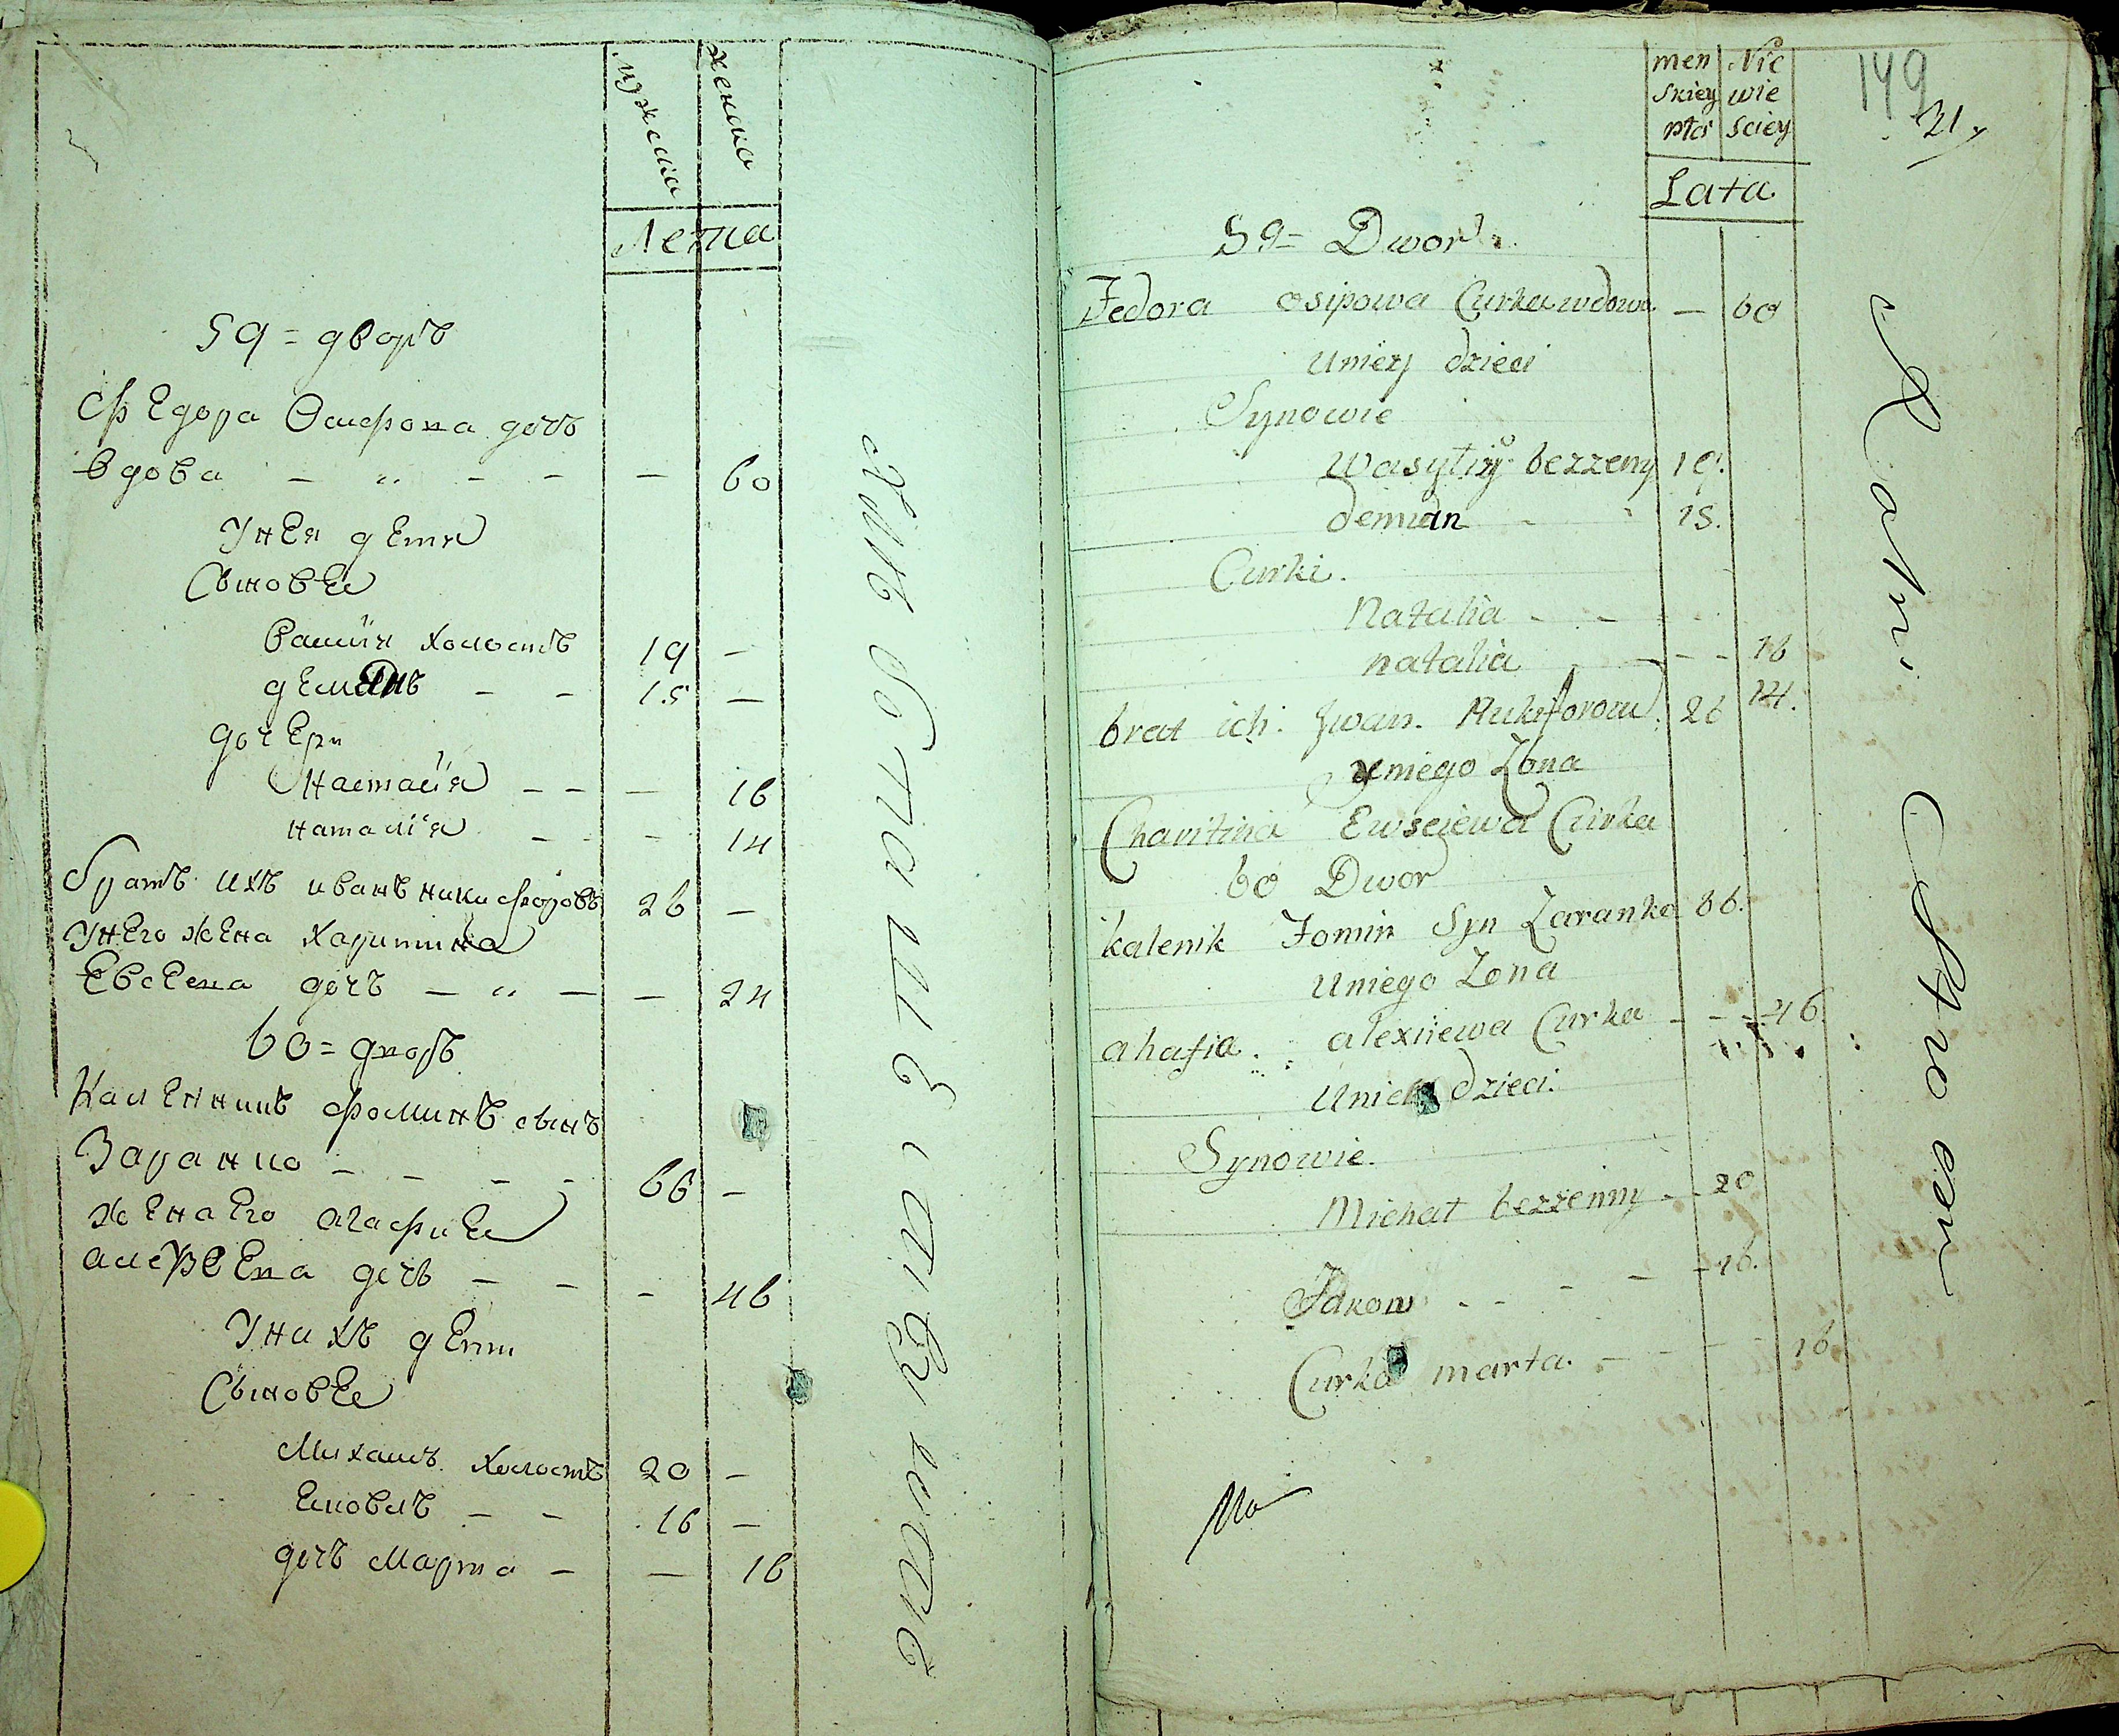 мужеска
женска
Летиа
59 = дворъ
Федора Осифова дочъ
вдова — „ — — — 60
У нея дети
Сыновѣе
Васили холостъ 19 —
демянъ — — 15 —
дочери
Настасия — — — 16
наталия — — — 14
братъ ихъ иванъ никифоровъ 26 —
у него жена Харитина
Евсеева дочъ — „ — — 24
60 = дворъ
Каленникъ фоминъ сынъ
Заранко — — — — 66 —
жена его агафие
алексеева дочъ — — — 46
У нихъ дети
Сыновѣе
Михаилъ холостъ 20 —
Яковлъ — — 16 —
дочъ Марта — — 16
men Nie
skiey wie
płci sciey
149
21
Lata
59 = Dwor
Fedora osipowa Curka wdowa — 60
Uniey dzieci
Synowie
Wasyliy bezzeny 19.
demian - - 15.
Curki.
Natalia - - -
natalia - - - 16
brat ich: Jwan Nukiforow. 26 14.
Uniego Zona
Charitina Ewseiewa Curka
60 Dwor
kalenik Fomin Syn Zaranko 86.
Uniego Zona
ahafia alexiiewa Curka - - 46.
Unich dzieci.
Synowie.
Michał bezzenny - - 20
Jakow - - - - 16.
Curka marta. - - - 16